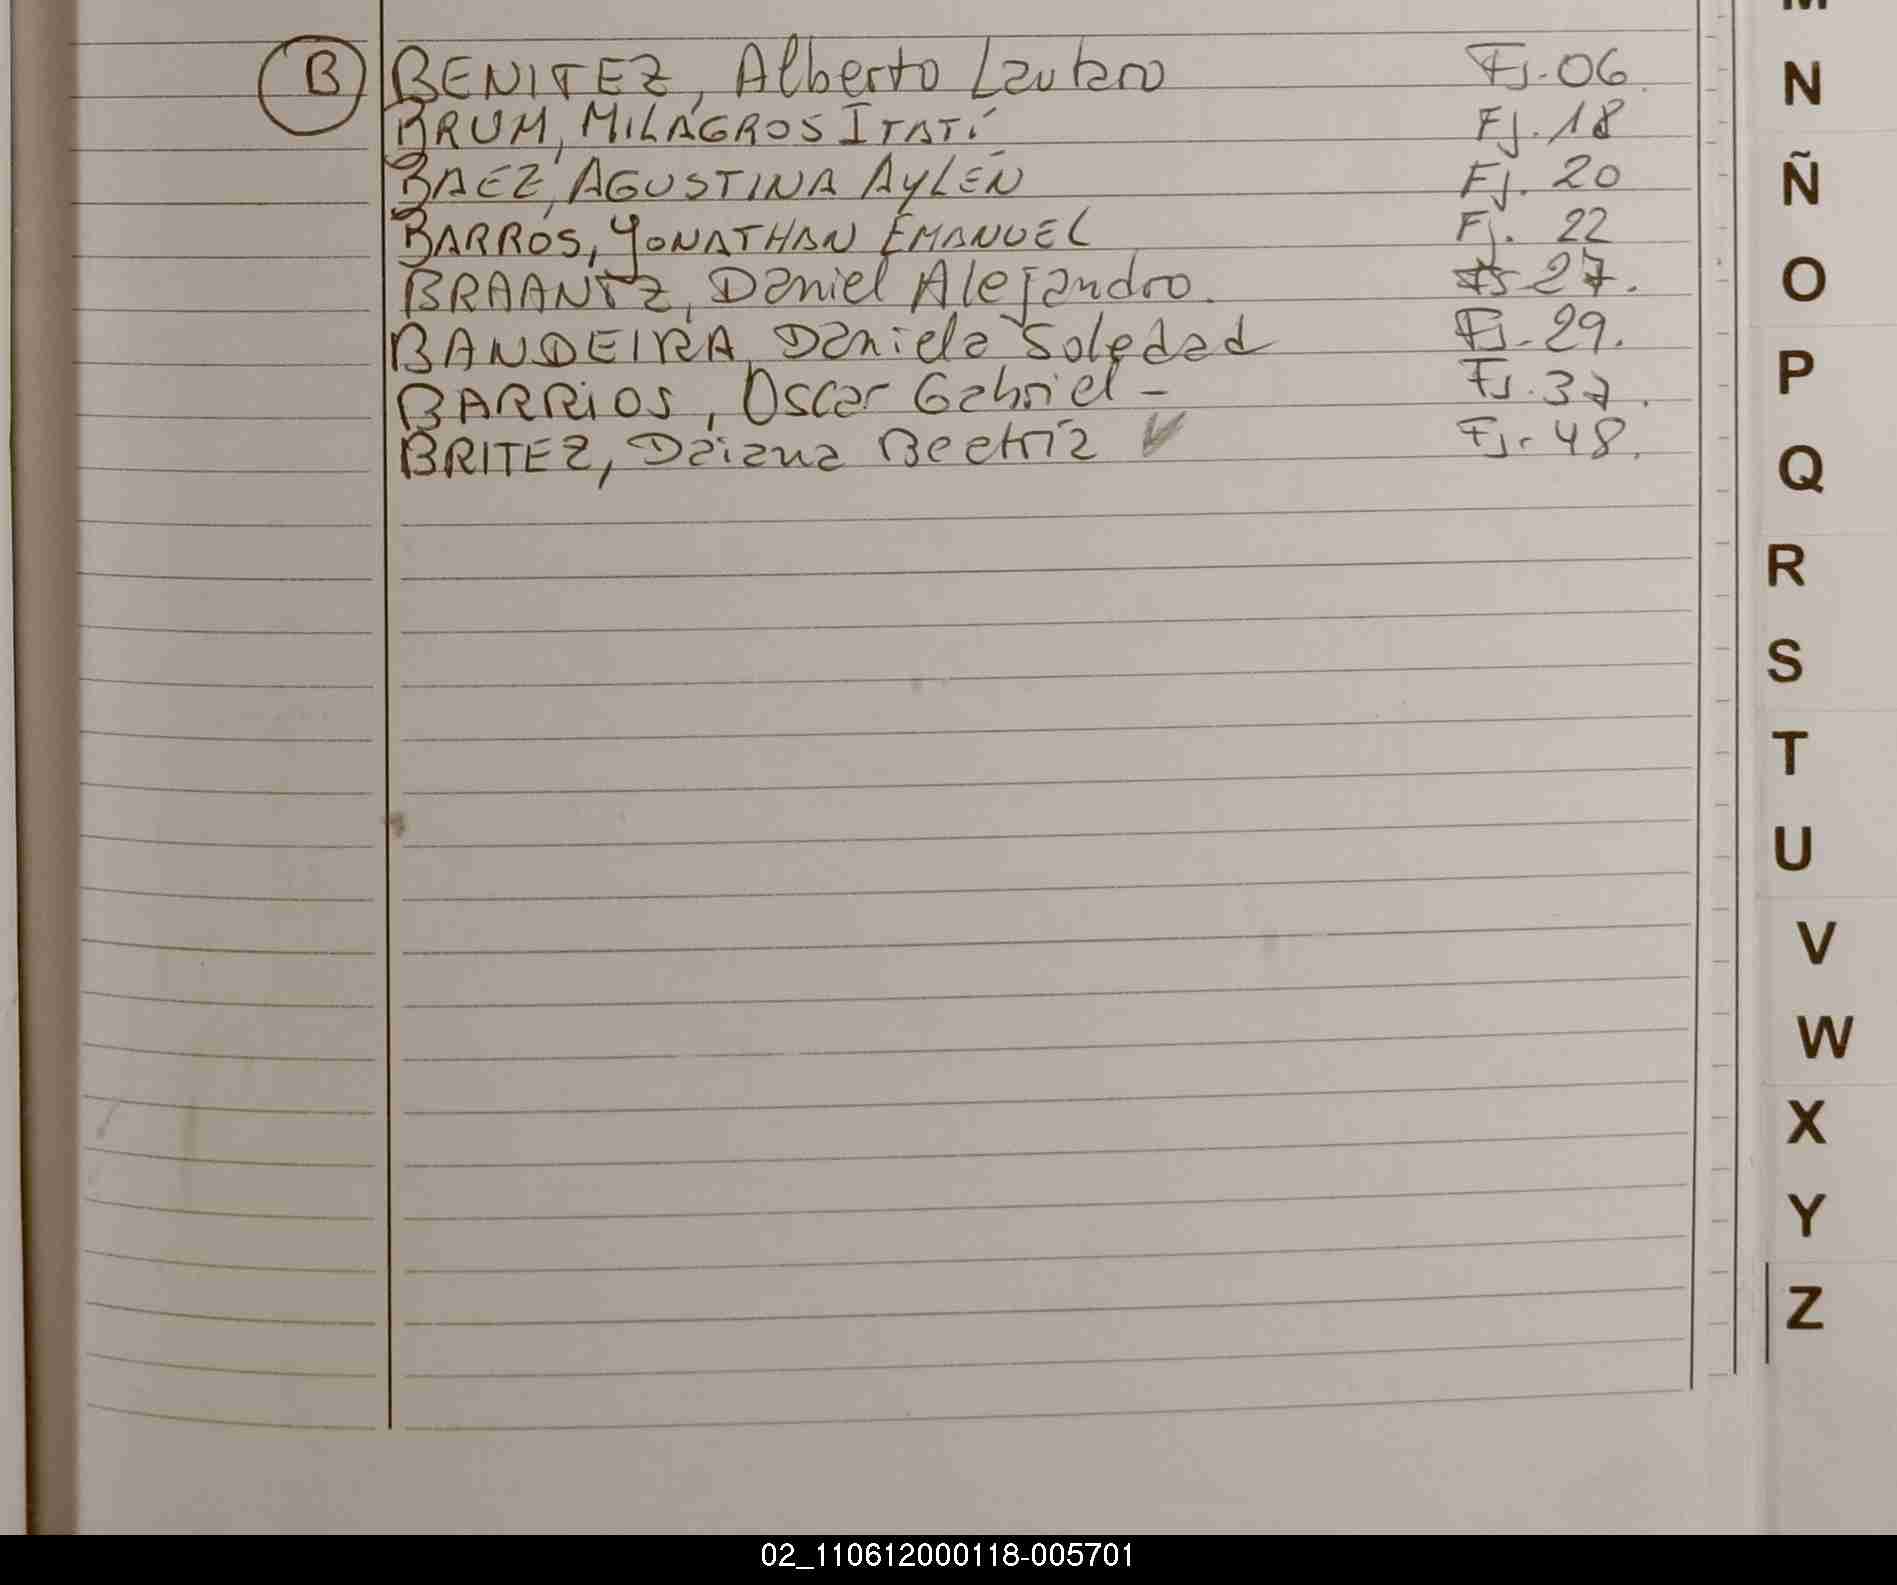 B BENITEZ, Alberto Lautaro Fj. 06.
BRUM, MILAGROS ITATÍ Fj. 18
BAEZ, AGUSTINA AYLÉN Fj. 20
BARROS, YONATHAN EMANUEL Fj. 22
BRAANTZ, Daniel Alejandro. Fs 27.
BANDEIRA, Daniela Soledad Fj. 29.
BARRiOS, Oscar Gabriel - Fj. 37.
BRITEZ, Daiana Beatriz Fj. 48.
N
Ñ
O
P
Q
R
S
T
U
V
W
X
Y
Z
02_110612000118-005701